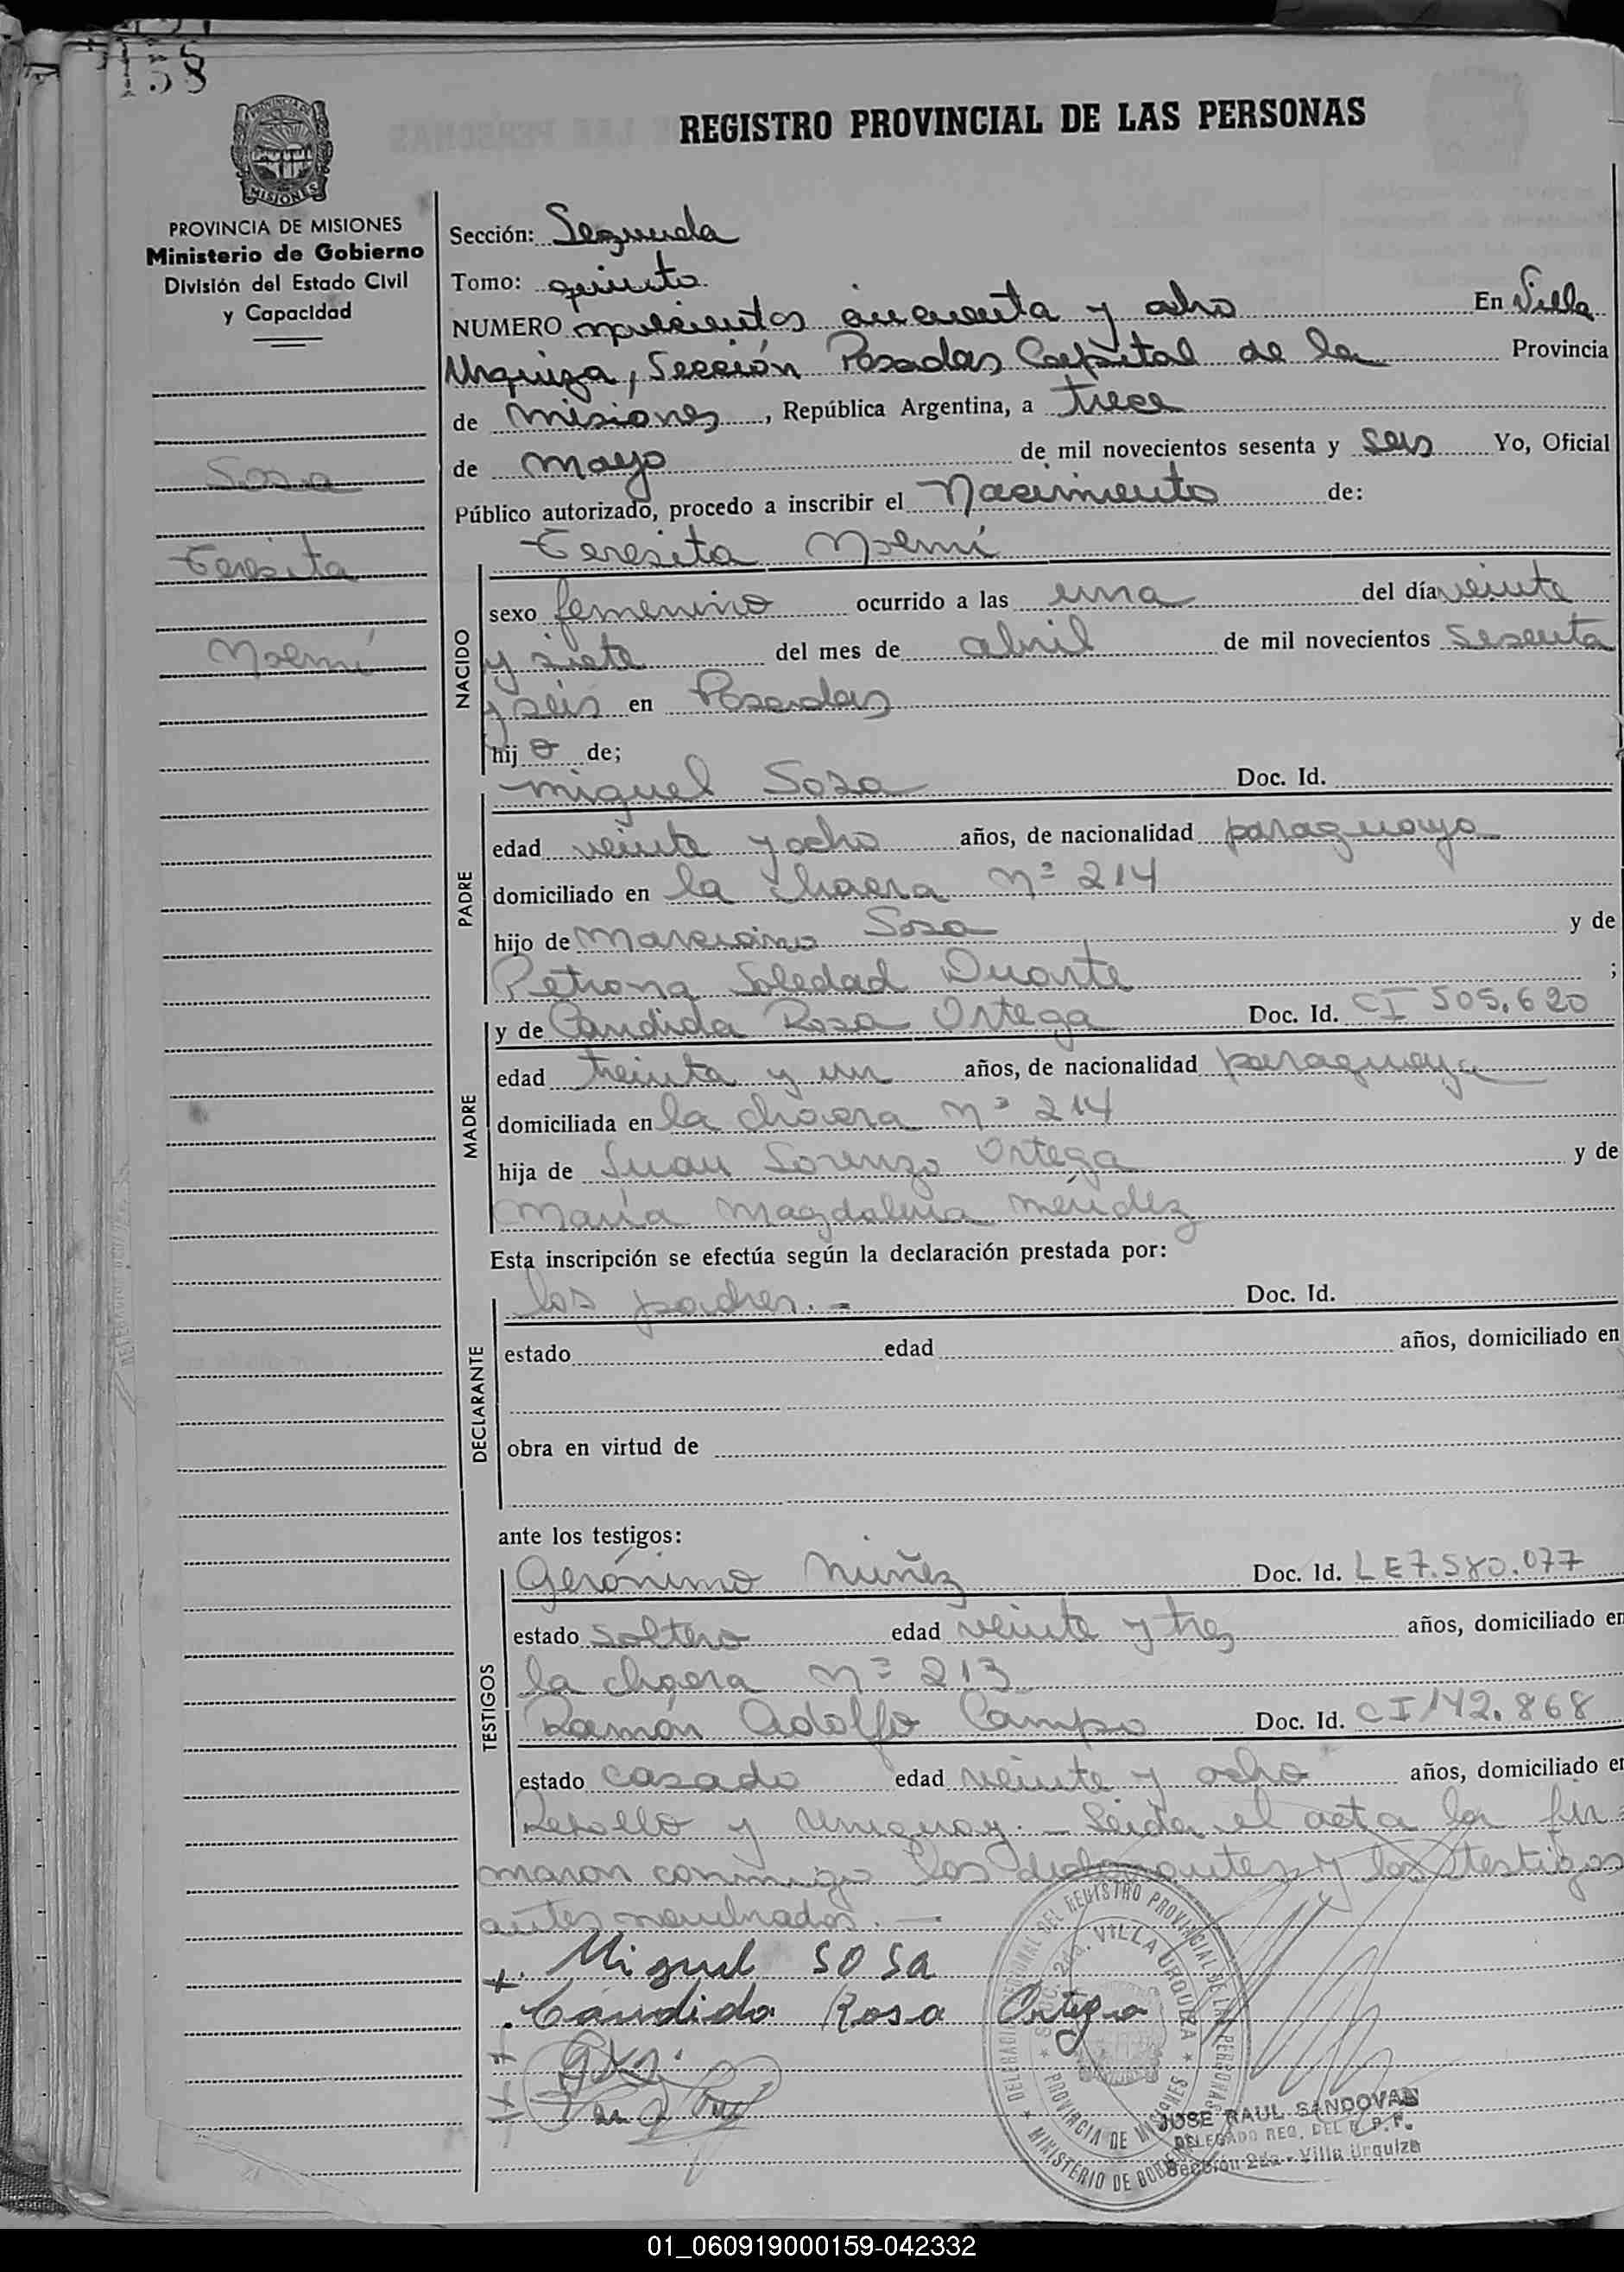 158
REGISTRO PROVINCIAL DE LAS PERSONAS
MISIONES
PROVINCIA DE MISIONES
Ministerio de Gobierno
División del Estado Civil
y Capacidad
Sosa
Teresita
Noemí
Sección: Segunda
Tomo: quinto.
NUMERO cincuenta y ocho En Villa
Urquiza, Sección Posadas Capital de la Provincia
de Misiones, República Argentina, a trece
de mayo de mil novecientos sesenta y seis Yo, Oficial
Público autorizado, procedo a inscribir el Nacimiento de:
Teresita Noemí
NACIDO
sexo femenino ocurrido a las una del día veinte
y siete del mes de abril de mil novecientos sesenta
y seis en Posadas
hij a de;
PADRE
Miguel Sosa Doc. Id.
edad veinte y ocho años, de nacionalidad paraguayo
domiciliado en la chacra Nº 214
hijo de Marcelino Sosa y de
Petrona Soledad Duarte ;
MADRE
y de Candida Rosa Ortega Doc. Id. CI 505.620
edad treinta y un años, de nacionalidad paraguaya
domiciliada en la chacra Nº 214
hija de Juan Lorenzo Ortega y de
María Magdalena Méndez
Esta inscripción se efectúa según la declaración prestada por:
DECLARANTE
los padres.- Doc. Id.
estado edad años, domiciliado en
obra en virtud de
ante los testigos:
TESTIGOS
Gerónimo Núñez Doc. Id. LE 7.580.077
estado soltero edad veinte y tres años, domiciliado en
la chacra Nº 213
Ramón Adolfo Campo Doc. Id. CI 142.868
estado casado edad veinte y ocho años, domiciliado en
y Uruguay.- Leida el acta la fir-
maron conmigo los declarantes y los testigos
antes nombrados.-
Miguel SOSA
Candida Rosa Ortega
DELEGACION REGIONAL DEL REGISTRO PROVINCIAL DE LAS PERSONAS
MINISTERIO DE GOBIERNO
SECC. 2da. VILLA URQUIZA
PROVINCIA DE MISIONES
JOSE RAUL SANDOVAL
DELEGADO REG. DEL R. P. P.
Sección 2da - Villa Urquiza
01_060919000159-042332